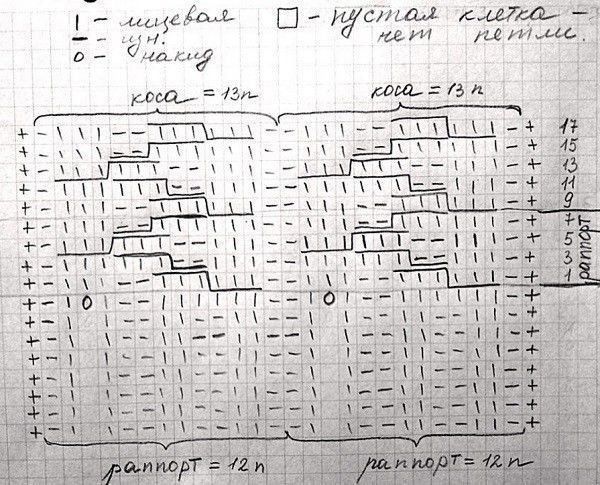 | - лицевая □ - пустая клетка -
- - изн. нет петли.
о - накид
коса = 13п коса = 13п
17
15
13
11
9
7
5
3
1
раппорт
раппорт = 12 п раппорт = 12 п